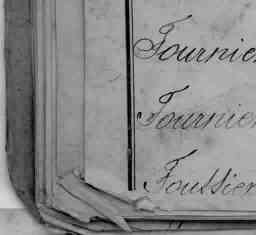 Fournier
Fournier
Foussier